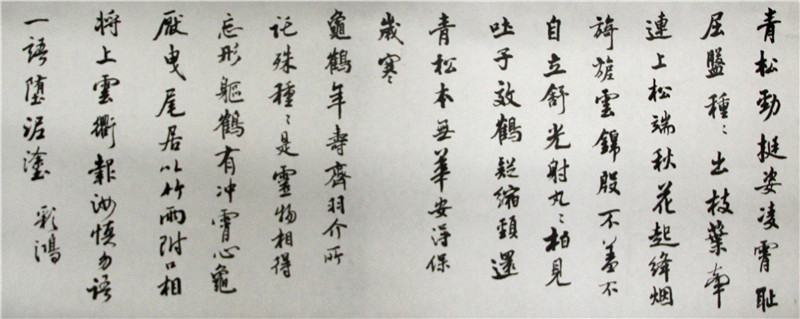 青松勁挺姿凌霄恥
屈盤種〻出枝葉牽
連上松端秋花起絳烟
旖旎雲錦殷不羞不
自立舒光射丸〻柏見
吐子效鶴疑縮頸還
青松本無華安得保
歲寒
龜鶴年壽齊羽介所
託殊種〻是靈物相得
忘形軀鶴有冲霄心龜
厭曳尾居以竹兩附口相
將上雲衢報汝慎勿語
一語墮泥塗 彩鴻